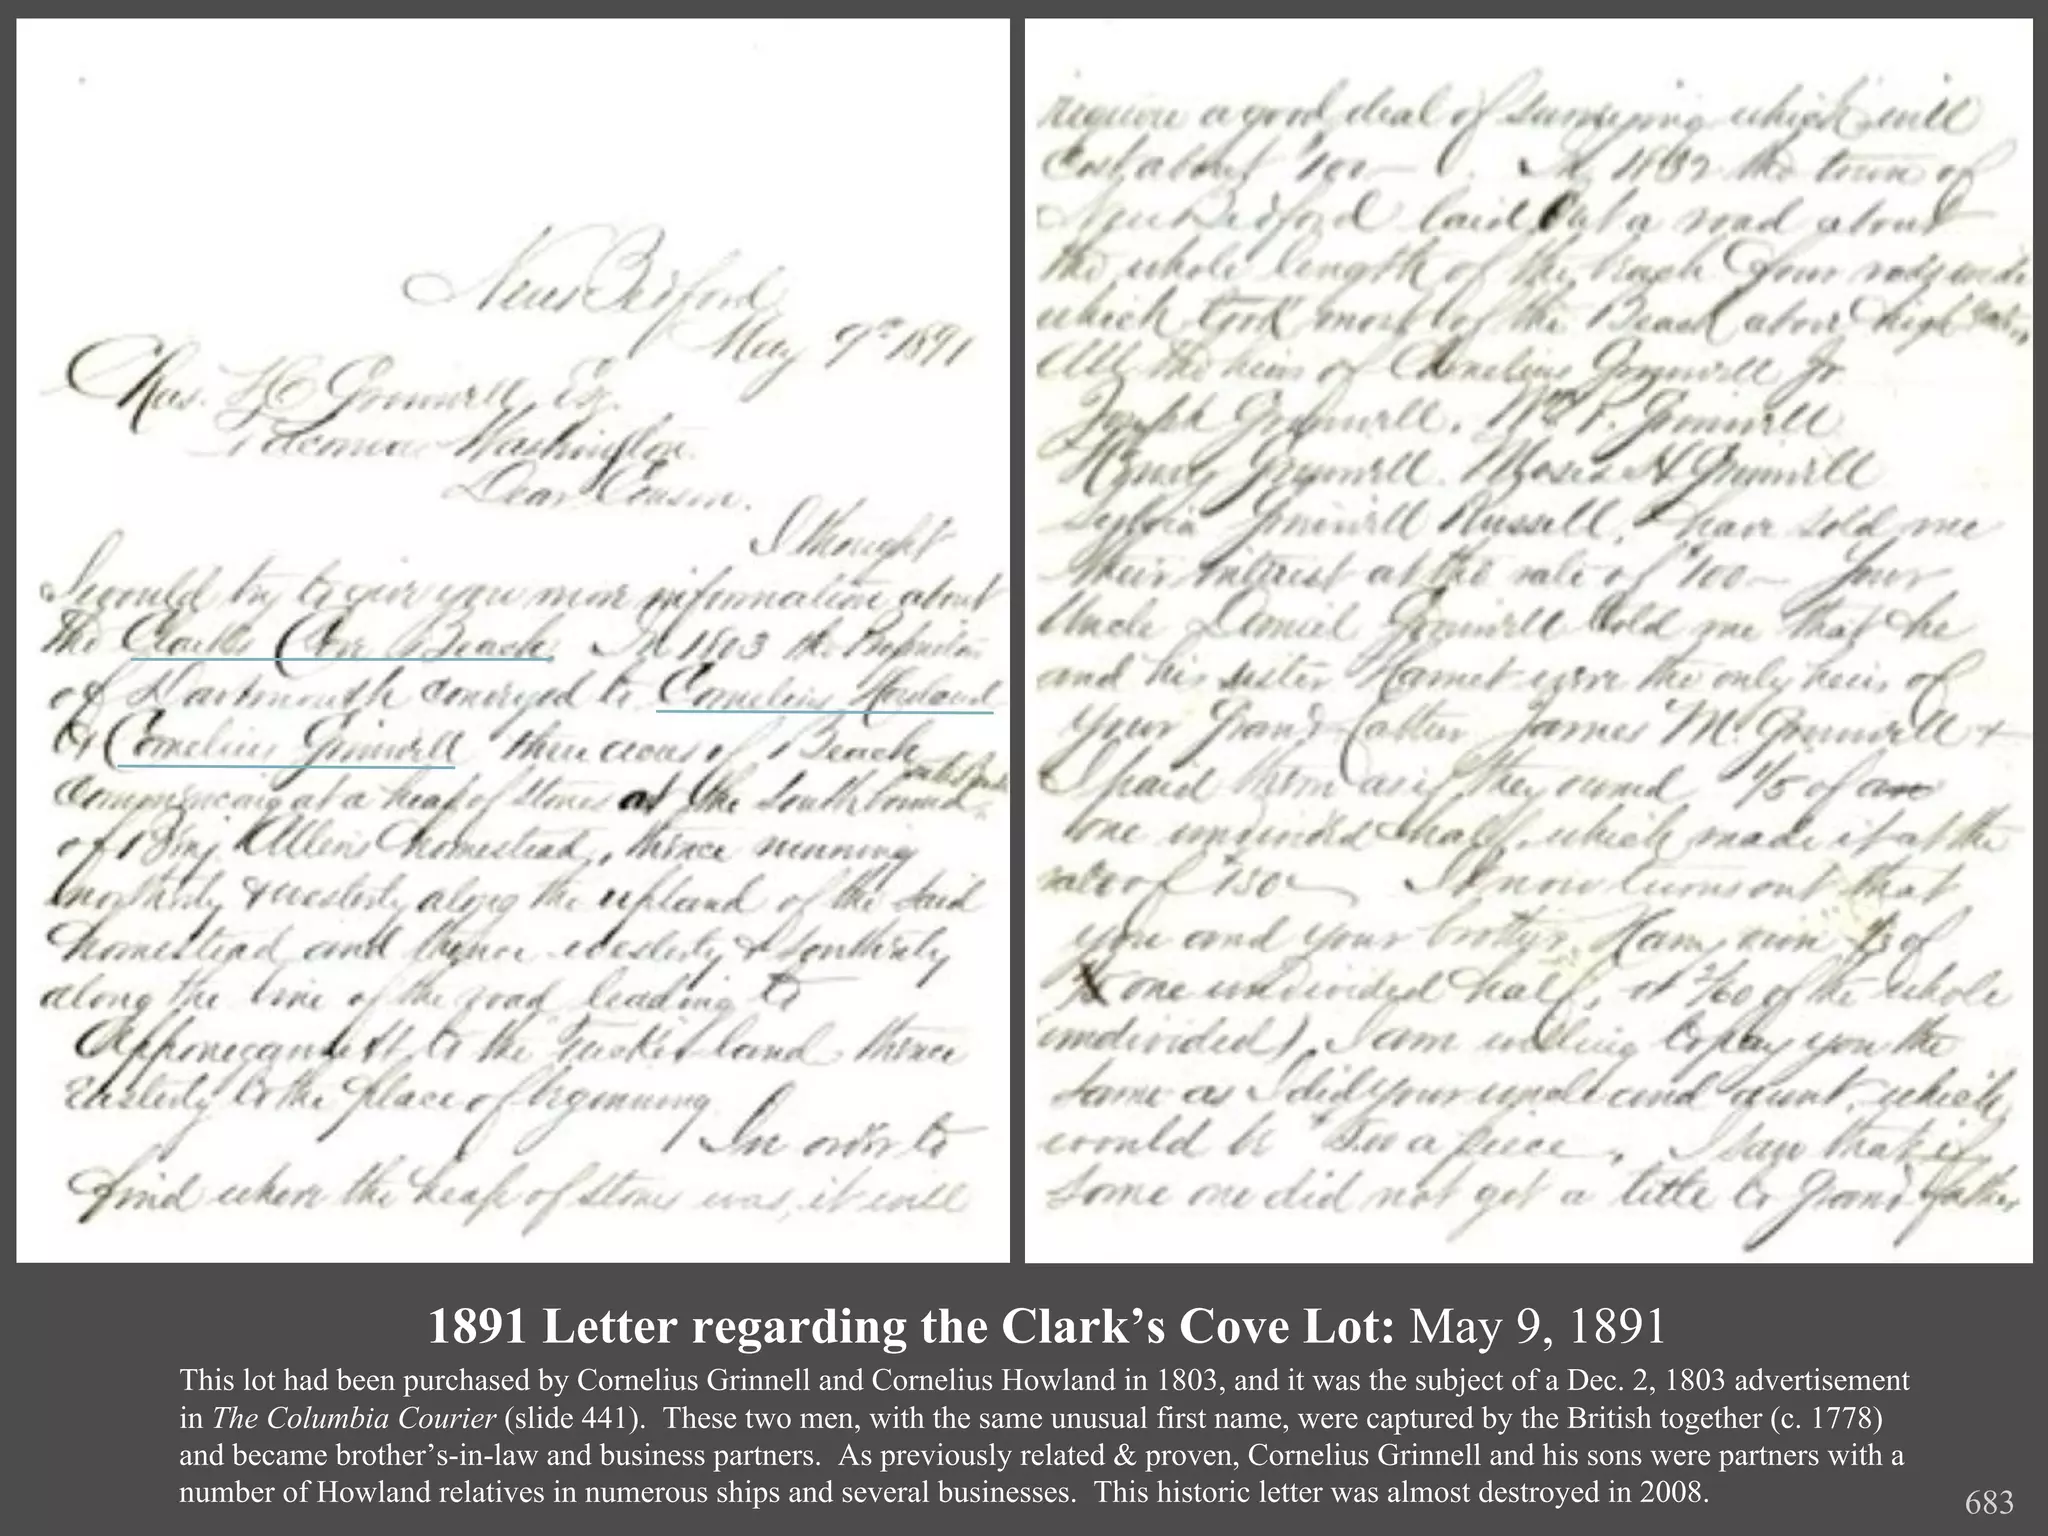 New Bedford
May 9th 1891
Chas. H Grinnell Esq.
Tacoma Washington.
Dear Cousin.
I thought
I would try to give you more information about
the Clarks Cove Beach. In 1803 the Proprietors
of Dartmouth conveyed to Cornelius Howland
& Cornelius Grinnell three acres of Beach
commencing at a heap of stones at the South bound
of Benj Allens homestead, thence running
northerly & westerly along the upland of the said
homestead and thence westerly & southerly
along the line of the road leading to
Apponegansett to the Tucker land thence
easterly to the place of begenning.
In order to
find where the heap of stones was, it will
require a good deal of surveying which will
cost about $100-. In 18 2 the town of
New Bedford laid out a road about
the whole length of the beach four rods wide
which took most of the Beach above high water,
All the heirs of Cornelius Grinnell Jr.
Joseph Grinnell. Wm P. Grinnell
Henry Grinnell. Moses H Grinnell
Sylvia Grinnell Russell, have sold me
their interest at the rate of $100- Your
Uncle Daniel Grinnell told me that he
and his sister Harriet were the only heirs of
your Grand father James M. Grinnell &
I paid them as if they owned 1/5 of
one undivided half, which made it at the
rate of $150- It now turns out that
you and your brother own 1/3 of
one undivided half, or of the whole
undivided), I am willing to pay you the
same as I did your uncle and aunt, which
would be a piece. I saw that if
some one did not get a title to Grand father
1891 Letter regarding the Clark’s Cove Lot: May 9, 1891
This lot had been purchased by Cornelius Grinnell and Cornelius Howland in 1803, and it was the subject of a Dec. 2, 1803 advertisement
in The Columbia Courier (slide 441).  These two men, with the same unusual first name, were captured by the British together (c. 1778)
and became brother’s-in-law and business partners.  As previously related & proven, Cornelius Grinnell and his sons were partners with a
number of Howland relatives in numerous ships and several businesses.  This historic letter was almost destroyed in 2008.
683